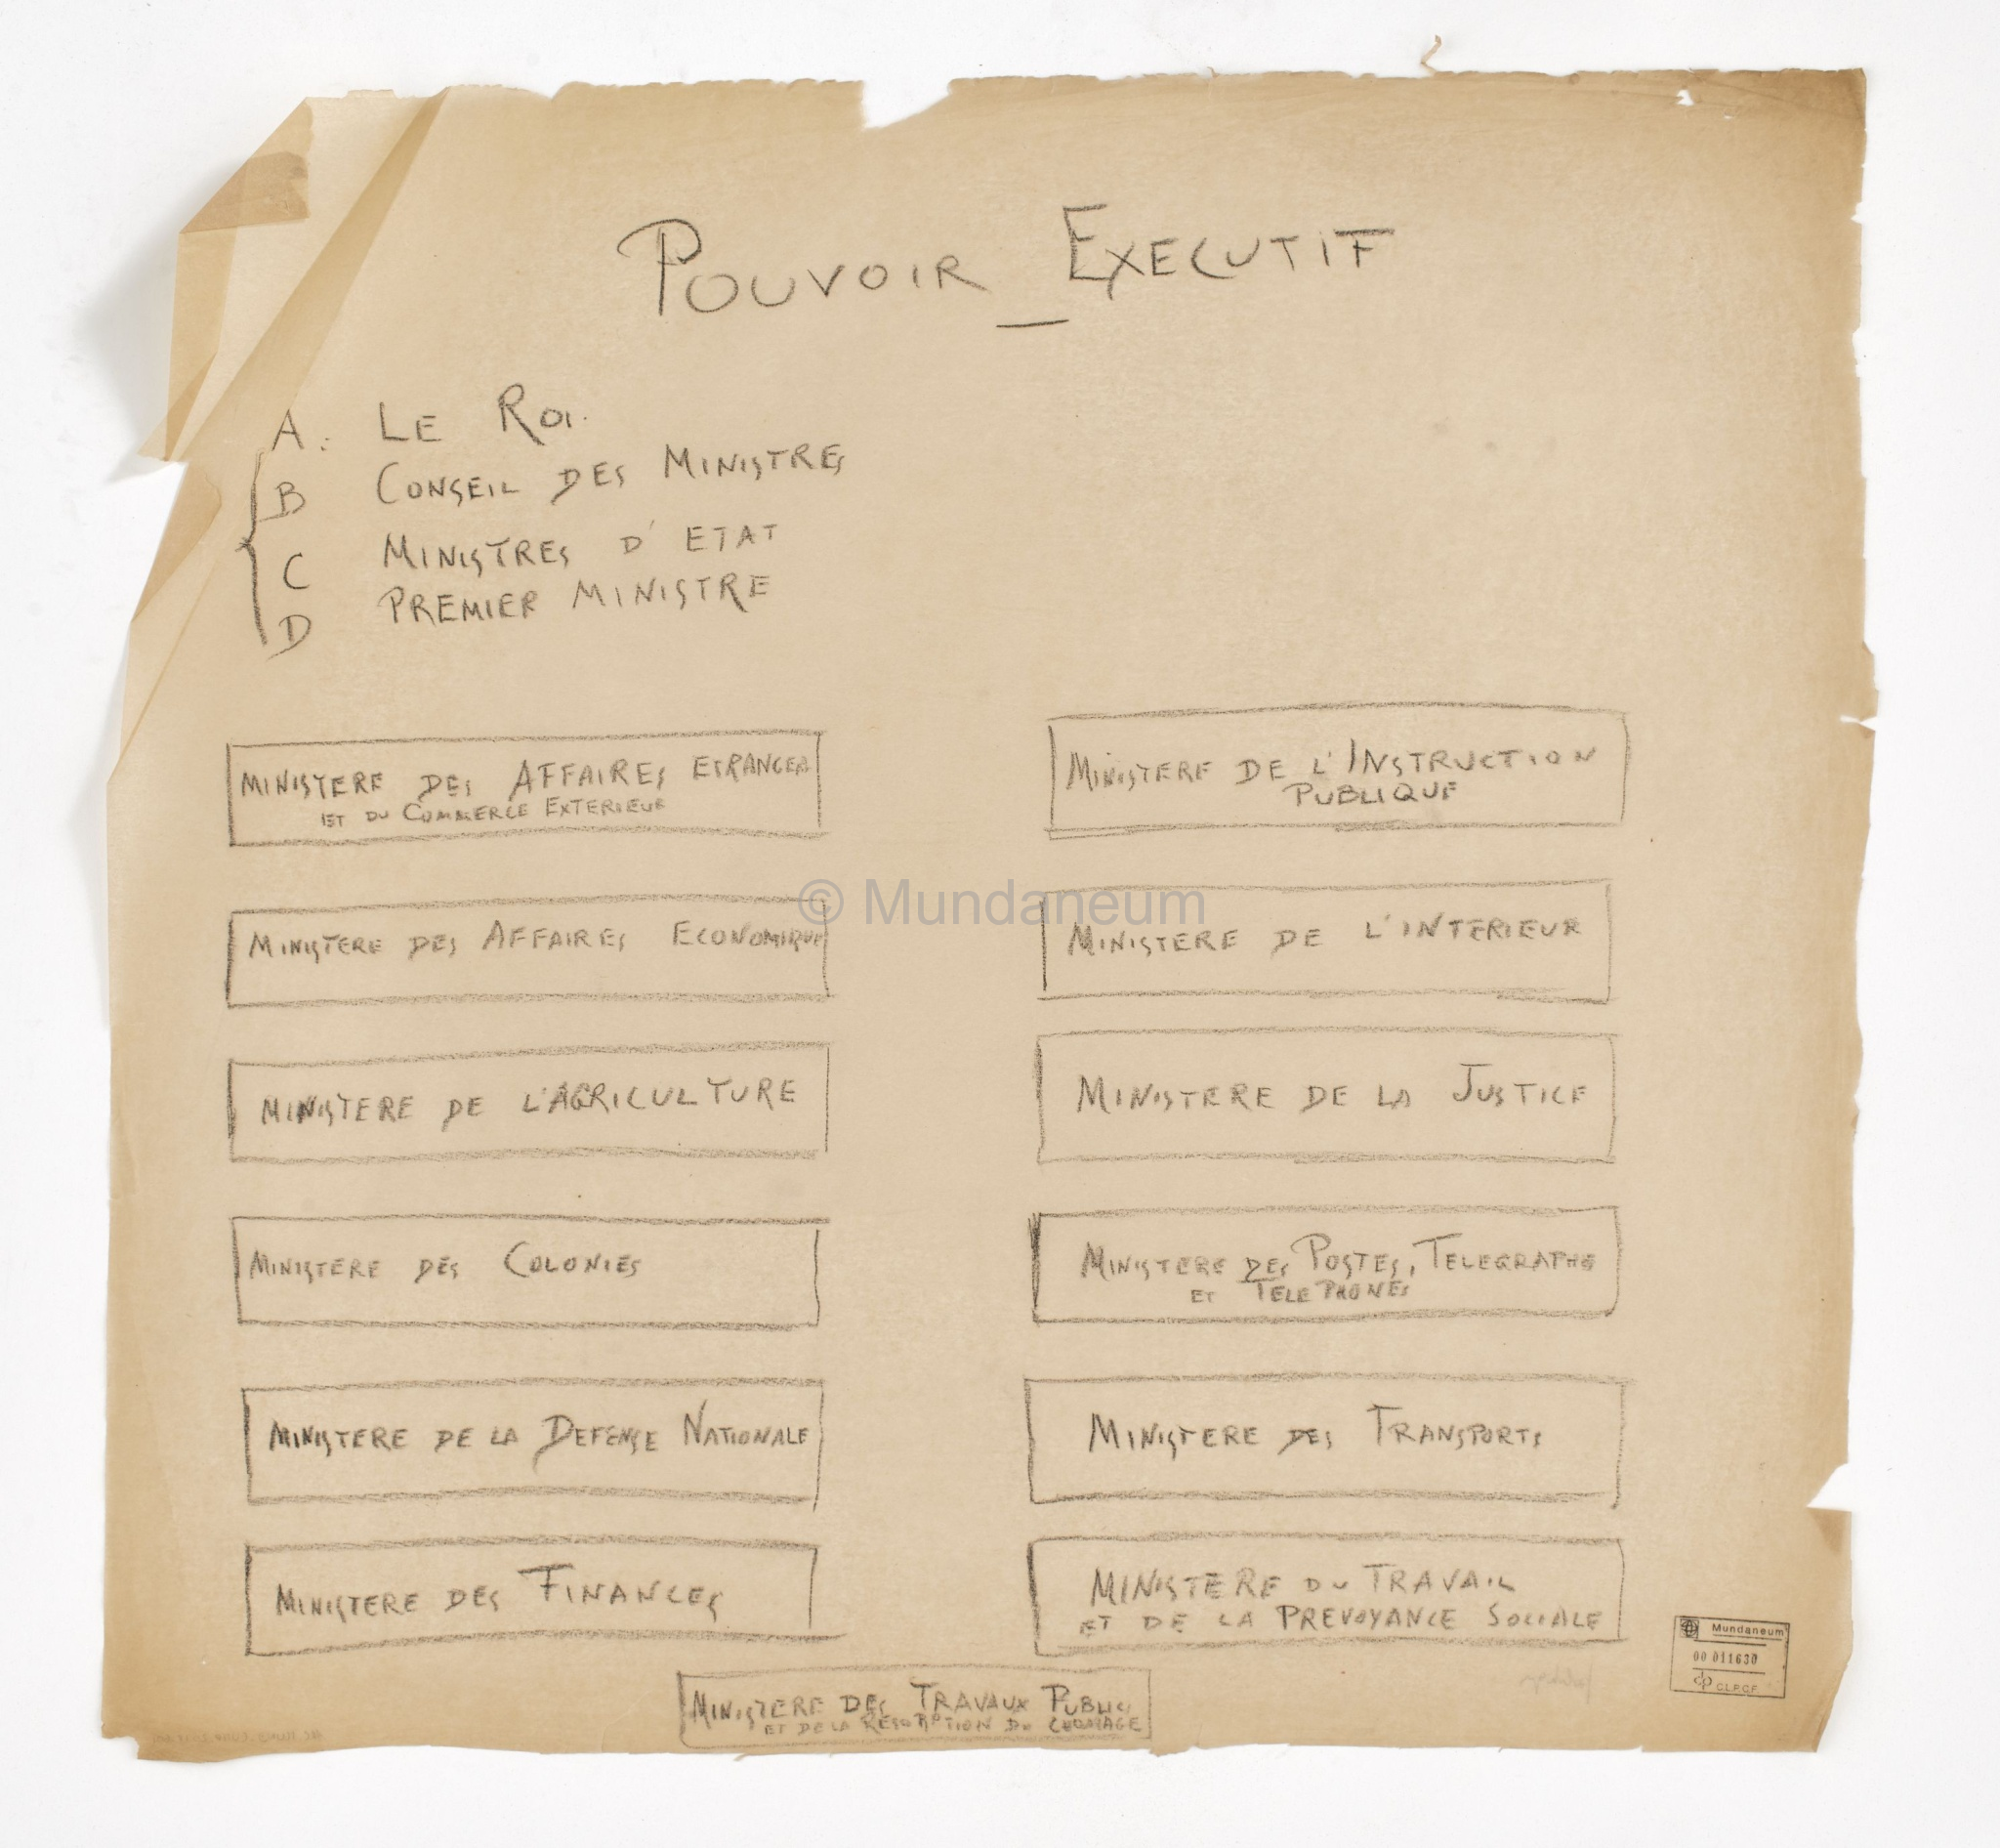 POUVOIR _ EXECUTIF
A. LE ROI.
B CONSEIL DES MINISTRES
C MINISTRES D'ETAT
D PREMIER MINISTRE
MINISTERE DES AFFAIRES ETRANGERS
ET DU COMMERCE EXTERIEUR
MINISTERE DES AFFAIRES ECONOMIQUES
MINISTERE DE L'AGRICULTURE
MINISTERE DES COLONIES
MINISTERE DE LA DEFENSE NATIONALE
MINISTERE DES FINANCES
MINISTERE DE L'INSTRUCTION
PUBLIQUE
MINISTERE DE L'INTERIEUR
MINISTERE DE LA JUSTICE
MINISTERE DES POSTES, TELEGRAPHE
ET TELEPHONES
MINISTERE DES TRANSPORTS
MINISTERE DU TRAVAIL
ET DE LA PREVOYANCE SOCIALE
MINISTERE DES TRAVAUX PUBLICS
ET DE LA RESORPTION DU CHOMAGE
© Mundaneum
Mundaneum
00 011630
C.L.P.C.F.